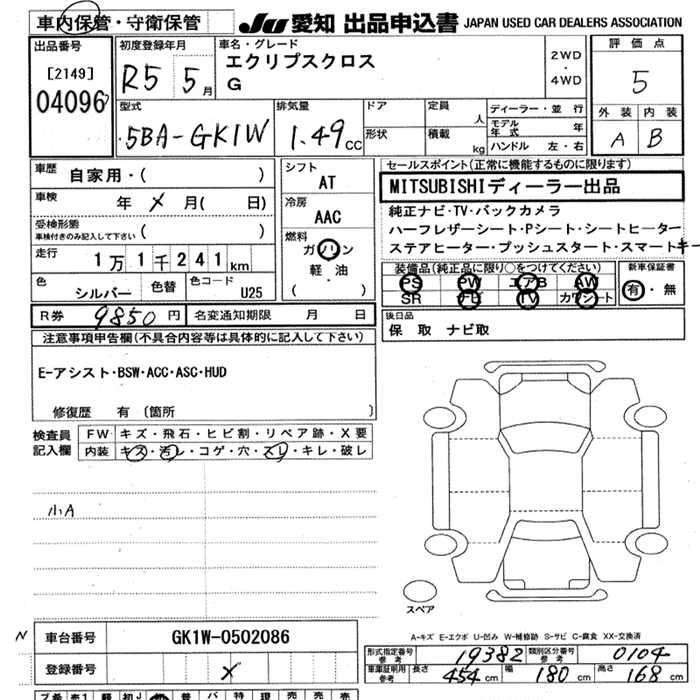 車内保管・守衛保管 JU 愛知 出品申込書 JAPAN USED CAR DEALERS ASSOCIATION
出品番号 初度登録年月 車名・グレード 評価点
[2149] R5 5月 エクリプスクロス 2WD・4WD 5
04096 G 外装 内装
型式 排気量 ドア 定員 人 ディーラー・並行 A B
5BA-GK1W 1.49cc 形状 積載 kg モデル年式 年
ハンドル 左・右
車歴 自家用・( ) シフト AT セールスポイント(正常に機能するものに限ります)
車検 年 メ 月( 日) 冷房 AAC MITSUBISHIディーラー出品
受検形態 車検付きのみ記入して下さい ( ) 純正ナビ・TV・バックカメラ
走行 1万1千241km 燃料 ガソリン・軽油・( ) ハーフレザーシート・Pシート・シートヒーター
ステアヒーター・プッシュスタート・スマートキー
色 シルバー 色替 色コード U25 装備品(純正品に限り○をつけてください) 新車保証書
PS PW エアB AW 有・無
SR ナビ TV カワシート
R券 9850円 名変通知期限 月 日 後日品
保 取 ナビ取
注意事項申告欄(不具合内容等は具体的に記入して下さい)
E-アシスト・BSW・ACC・ASC・HUD
修復歴 有 [箇所 ]
検査員記入欄 FW キズ・飛石・ヒビ割・リペア跡・X要
内装 キズ・汚レ・コゲ・穴・スレ・キレ・破レ
小A
スペア
A-キズ E-エクボ U-凹み W-補修跡 S-サビ C-腐食 XX-交換済
N 車台番号 GK1W-0502086
形式指定番号 参考 19382 類別区分番号 参考 0104
登録番号 メ 車庫証明用 参考 長さ 454cm 幅 180cm 高さ 168cm